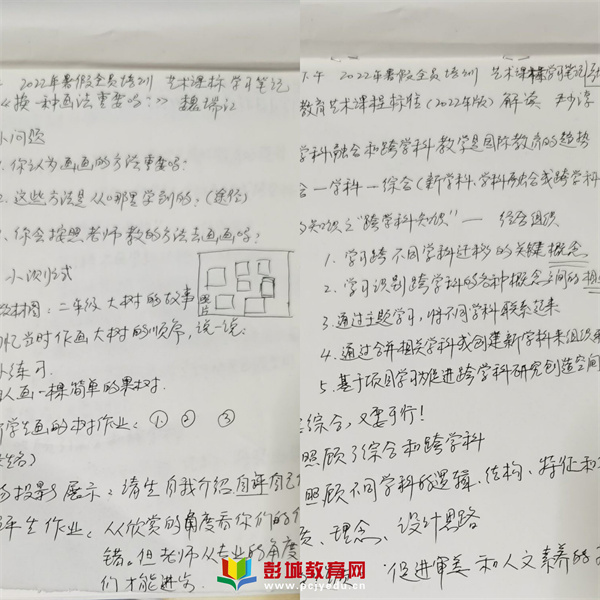 2022年暑假全员培训 艺术课标学习笔记
《按一种画法重要吗?》 魏瑞记
小问题
1.你认为画画的方法重要吗?
2.这些方法是从哪里学到的?(途径)
3.你会按照老师教的方法去画画吗?
小测形式
教材图:二年级 大树的故事
照片
回忆当时作画大树的顺序,说一说.
小练习.
每人画一棵简单的果树.
学生画的树作业: ① ② ③
投影展示:请生自我介绍
年生作业,从欣赏的角度看你们的
错。但老师从专业的角度
们才能进步.
2022年暑假全员培训 艺术课标学习笔记
教育艺术课程标准(2022年版)解读
学科融合和跨学科教学是国际教育的趋势
合一学科一综合(新学科、学科融合或跨学科
的知识之“跨学科知识”— 综合组织
1.学习跨不同学科迁移的关键概念
2.学习识别跨学科的各种概念之间的相
3.通过主题学习,将不同学科联系起来
4.通过合并相关学科或创建新学科来组织
5.基于项目学习促进跨学科研究创造空间
综合,又要可行!
照顾了综合和跨学科
照顾不同学科的逻辑、结构、特征和
理念、设计思路
促进审美和人文素养的
彭城教育网
www.pcjyedu.com